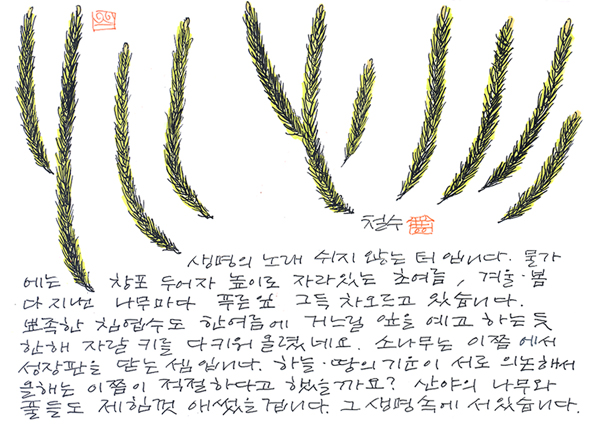 철수
생명의 노래 쉬지 않는 터 입니다. 물가
에는 창포 두어자 높이로 자라있는 초여름, 겨울·봄
다 지낸 나무마다 푸른잎 그득 차오르고 있습니다.
뾰족한 침엽수도 한여름에 거느릴 잎을 예고 하는 듯
한해 자랄 키를 다 키워 올렸네요. 소나무는 이쯤에서
성장판을 닫는 셈입니다. 하늘·땅의 기운이 서로 의논해서
올해는 이쯤이 적절하다고 했을까요? 산야의 나무와
풀들도 제힘껏 애썼을겁니다. 그 생명속에 서있습니다.